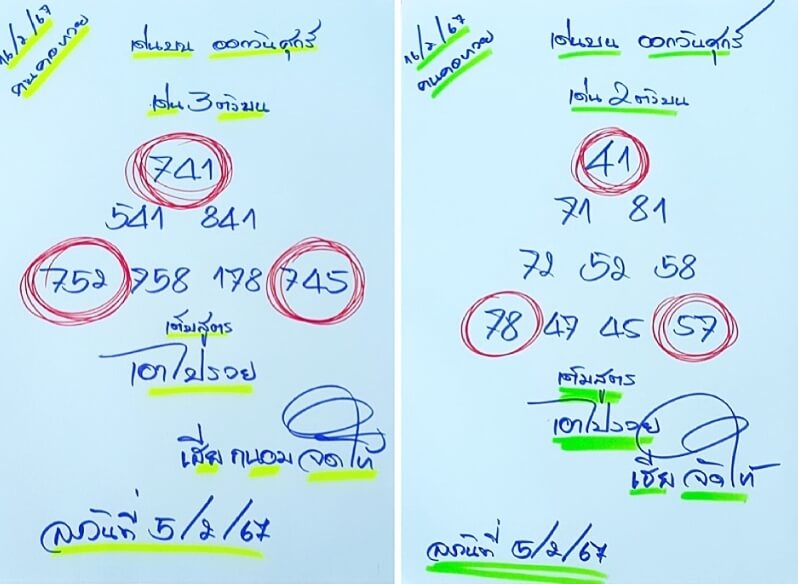 16/2/67
คนคอหวย
เด่นบน ออกวันศุกร์
เด่น 3 ตัวบน
741
541 841
752 758 178 745
เต็มสูตร
เอาไปรวย
เสี่ย ถนอม จัดให้
ลงวันที่ 5/2/67
16/2/67
คนคอหวย
เด่นบน ออกวันศุกร์
เด่น 2 ตัวบน
41
71 81
72 52 58
78 47 45 57
เต็มสูตร
เอาไปรวย
เสี่ย จัดให้
ลงวันที่ 5/2/67